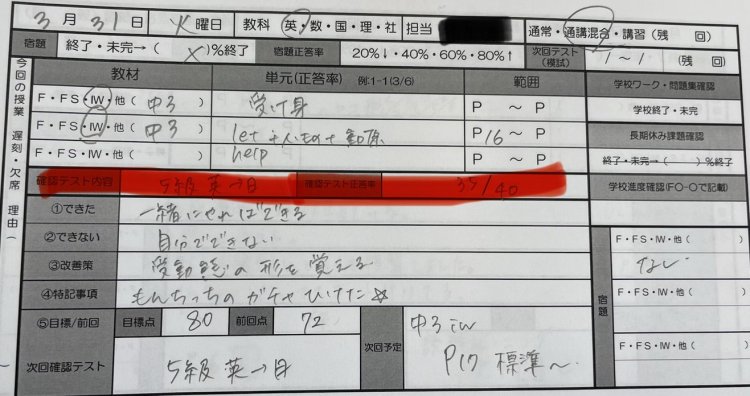 3月31日 火曜日 教科 英・数・国・理・社 担当 通常・通講混合・講習（残 回）
宿題 終了・未完→（ ）％終了 宿題正答率 20％↓・40％・60％・80％↑ 次回テスト（模試） 1～1 （残 回）
今回の授業 遅刻・欠席 理由（
教材 単元（正答率） 例:1-1(3/6) 範囲 学校ワーク・問題集確認
F・FS・IW・他（中3 ） 受け身 P ～ P 学校終了・未完
F・FS・IW・他（中3 ） let+人・もの+動原 P16～ P 長期休み課題確認
F・FS・IW・他（ ） help P ～ P 終了・未完→（ ）％終了
確認テスト内容 5級 英→日 確認テスト正答率 35/40 学校進度確認（FO-Oで記載）
①できた 一緒にやればできる
②できない 自分でできない
③改善策 受動態の形を覚える
④特記事項 もんちっちのガチャひけた☆
⑤目標/前回 目標点 80 前回点 72 次回予定 中3 iw
P17 標準～
次回確認テスト 5級 英→日
宿題
F・FS・IW・他（ ）
なし
F・FS・IW・他（ ）
F・FS・IW・他（ ）